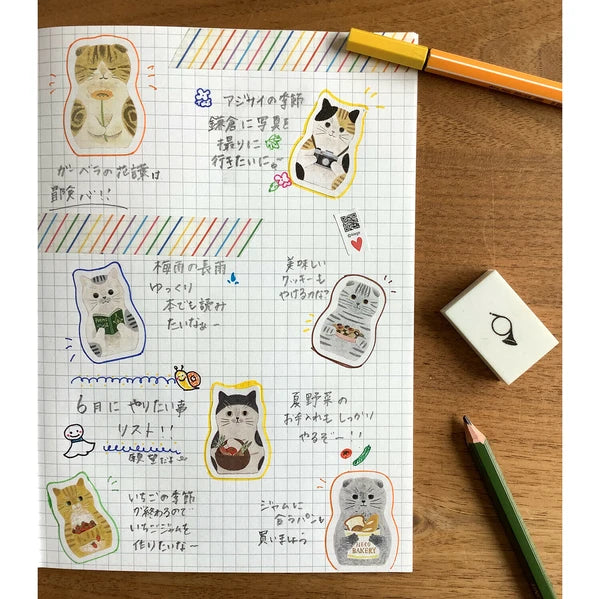 アジサイの季節
鎌倉に写真を
撮りに
行きたいに。～
ガーベラの花言葉は
冒険心!!
梅雨の長雨
ゆっくり
本でも読み
たいなぁー
美味しい
クッキーも
やけるかな?
6月にやりたい事
リスト!!
願望だょ
夏野菜の
お手入れもしっかり
やるぞー!!
いちごの季節
が終わるので
いちごジャムを
作りたいな～
ジャムに
合うパンも
買いましょう
NECO
BAKERY